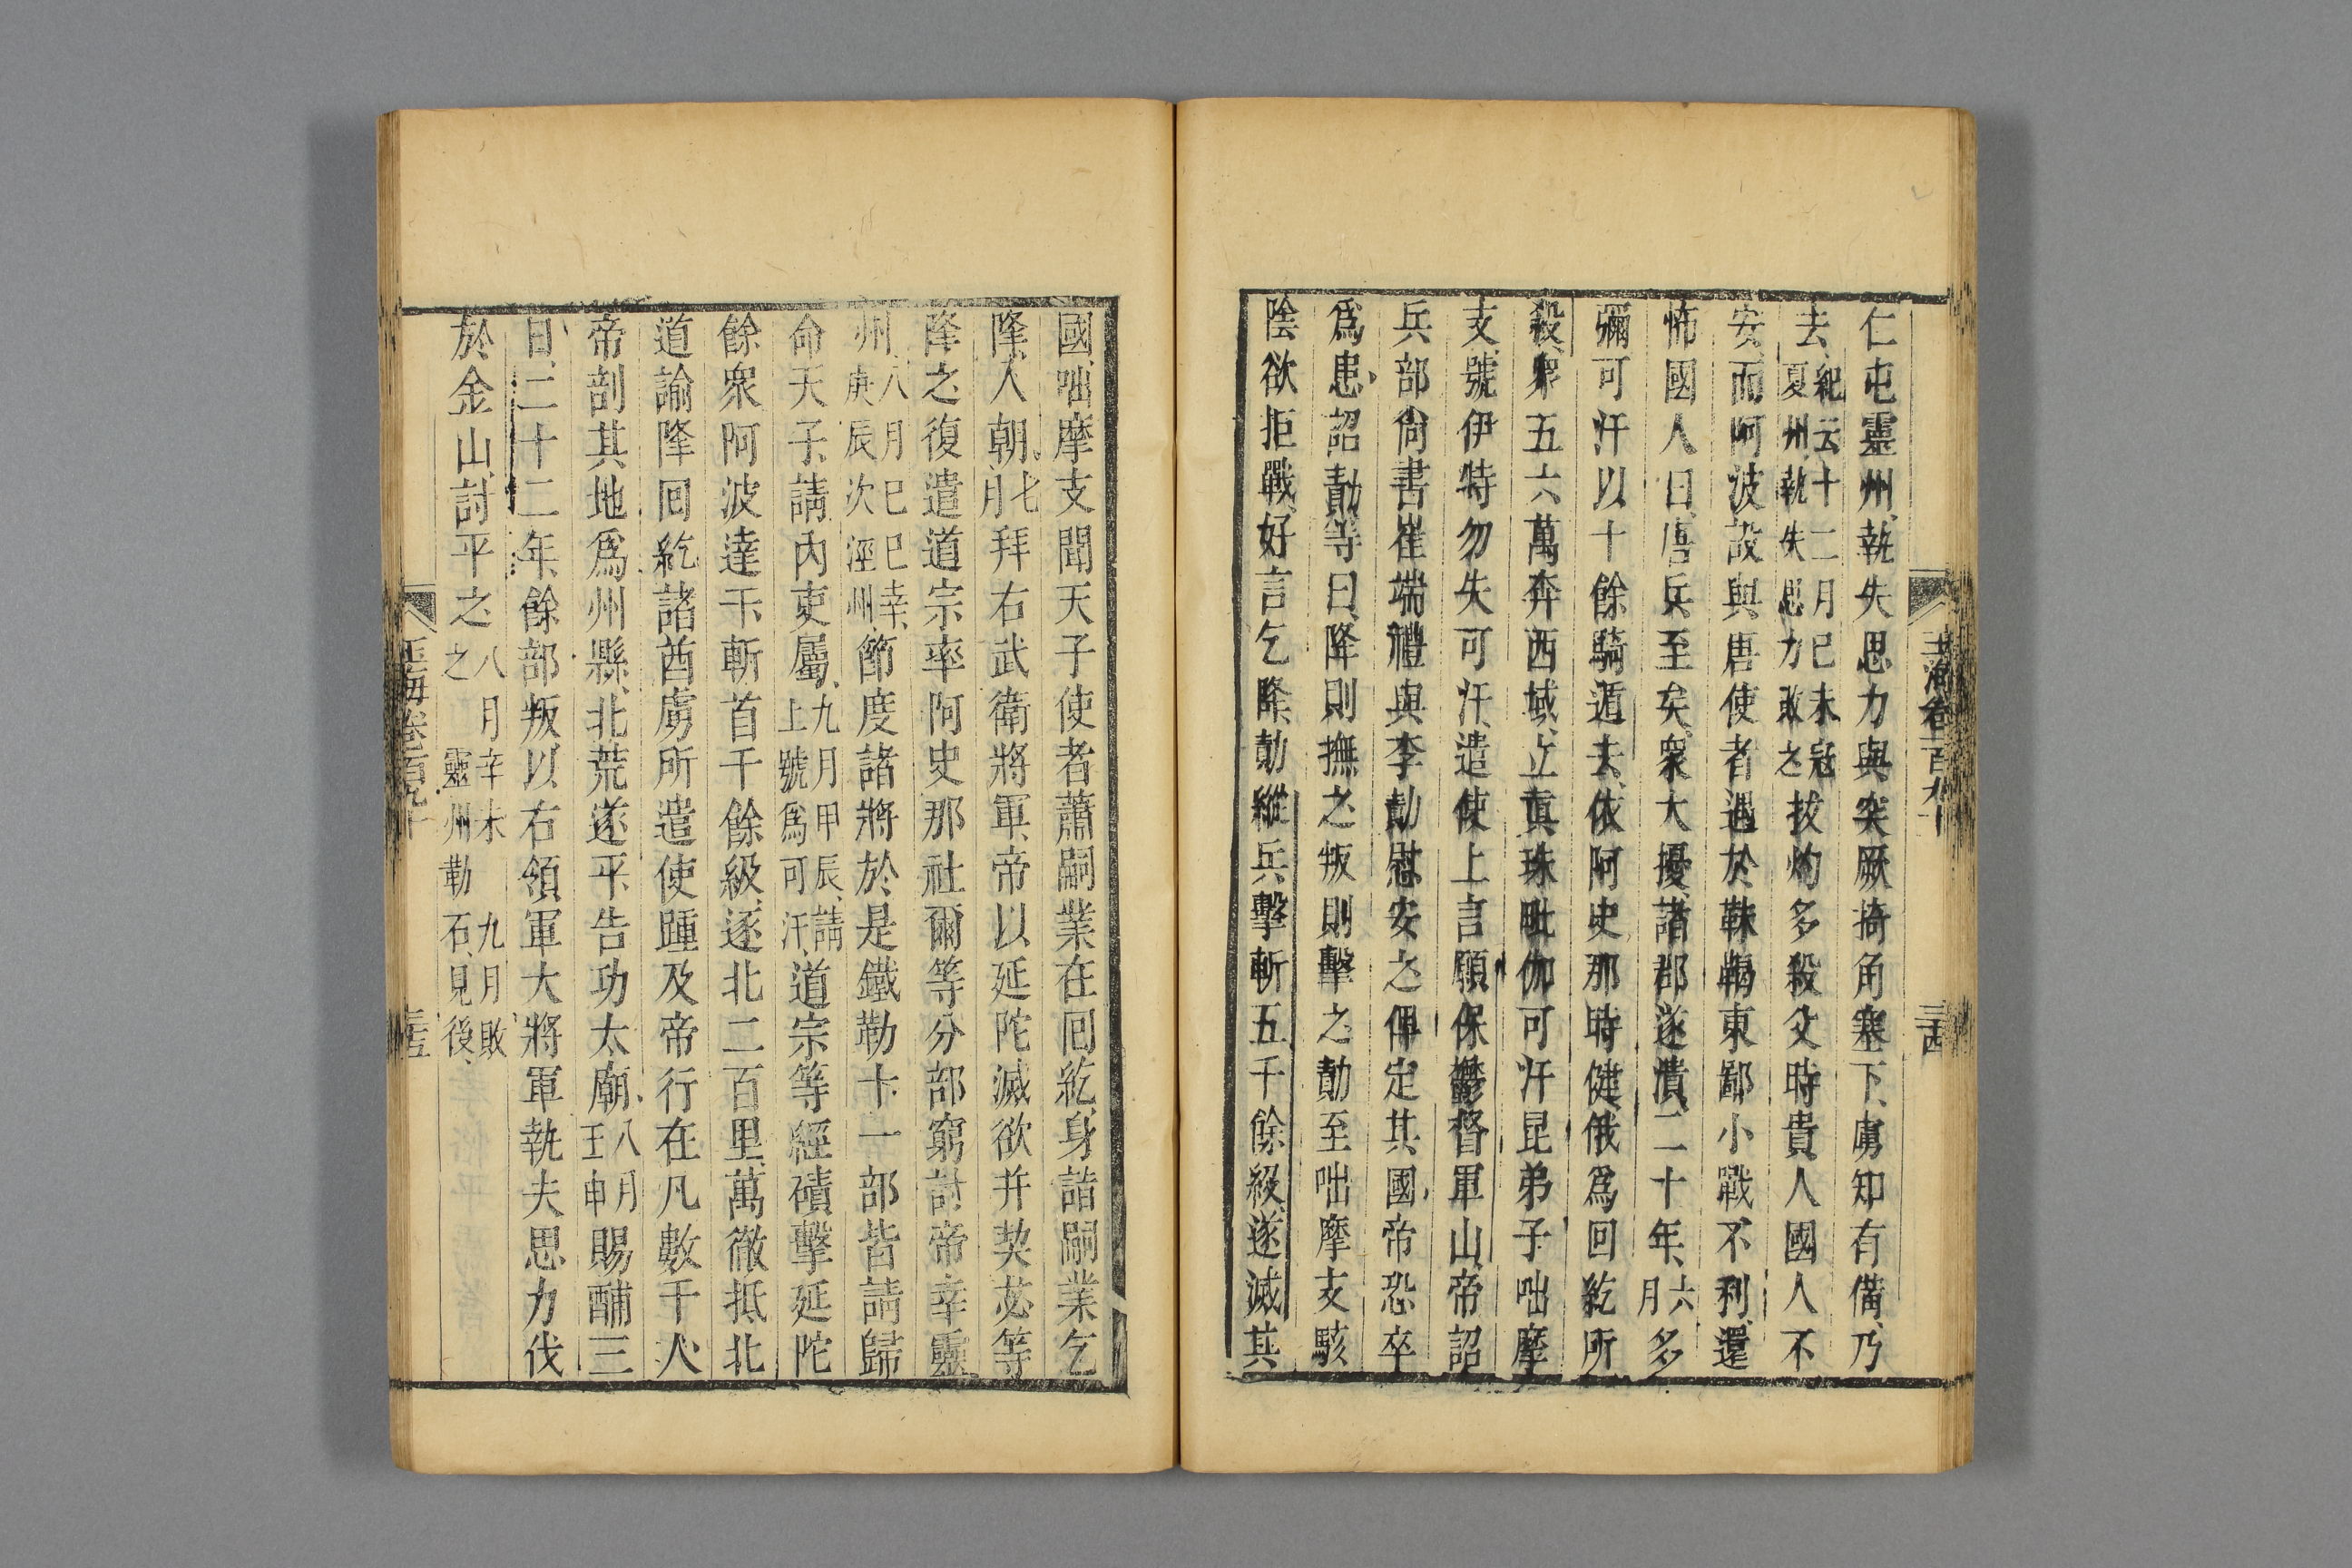 仁屯靈州、執失思力與突厥掎角塞下、虜知有備、乃
去、紀云十二月己未寇夏州、執失思力敗之拔灼多殺父時貴人國人不
安、而阿波設與唐使者遇於靺鞨東鄙小戰不利、還
怖國人曰、唐兵至矣、衆大擾、諸部遂潰、二十年、六月多
彌可汗以十餘騎遁去、依阿史那時健、俄爲回紇所
殺、衆五六萬奔西域、立眞珠毗伽可汗昆弟子咄摩
支、號伊特勿失可汗、遣使上言願保鬱督軍山、帝詔
兵部尙書崔端禮與李勣慰安之俾定其國、帝恐卒
爲患、詔勣等曰、降則撫之叛則擊之、勣至咄摩支駭
陰欲拒戰、好言乞降、勣縱兵擊斬五千餘級、遂滅其
玉海卷一百九十
三十四
國、咄摩支聞天子使者蕭嗣業在回紇、身詣嗣業乞
降、入朝、七月拜右武衛將軍、帝以延陀滅欲并契苾等
降之、復遣道宗率阿史那社爾等分部窮討、帝幸靈
州、八月己巳幸、庚辰次涇州、節度諸將於是鐵勒十一部皆請歸
命天子、請內吏屬、九月甲辰、請上號爲可汗、道宗等經磧擊延陀
餘衆阿波達干、斬首千餘級、逐北二百里、萬徹抵北
道諭降回紇諸酋虜所遣使踵及帝行在凡數千人
帝剖其地爲州縣、北荒遂平、告功太廟、八月壬申賜酺三
日、二十二年、餘部叛、以右領軍大將軍執失思力伐
於金山、討平之、八月辛未九月敗之靈州勒石、見後、
玉海卷一百九十
三十五